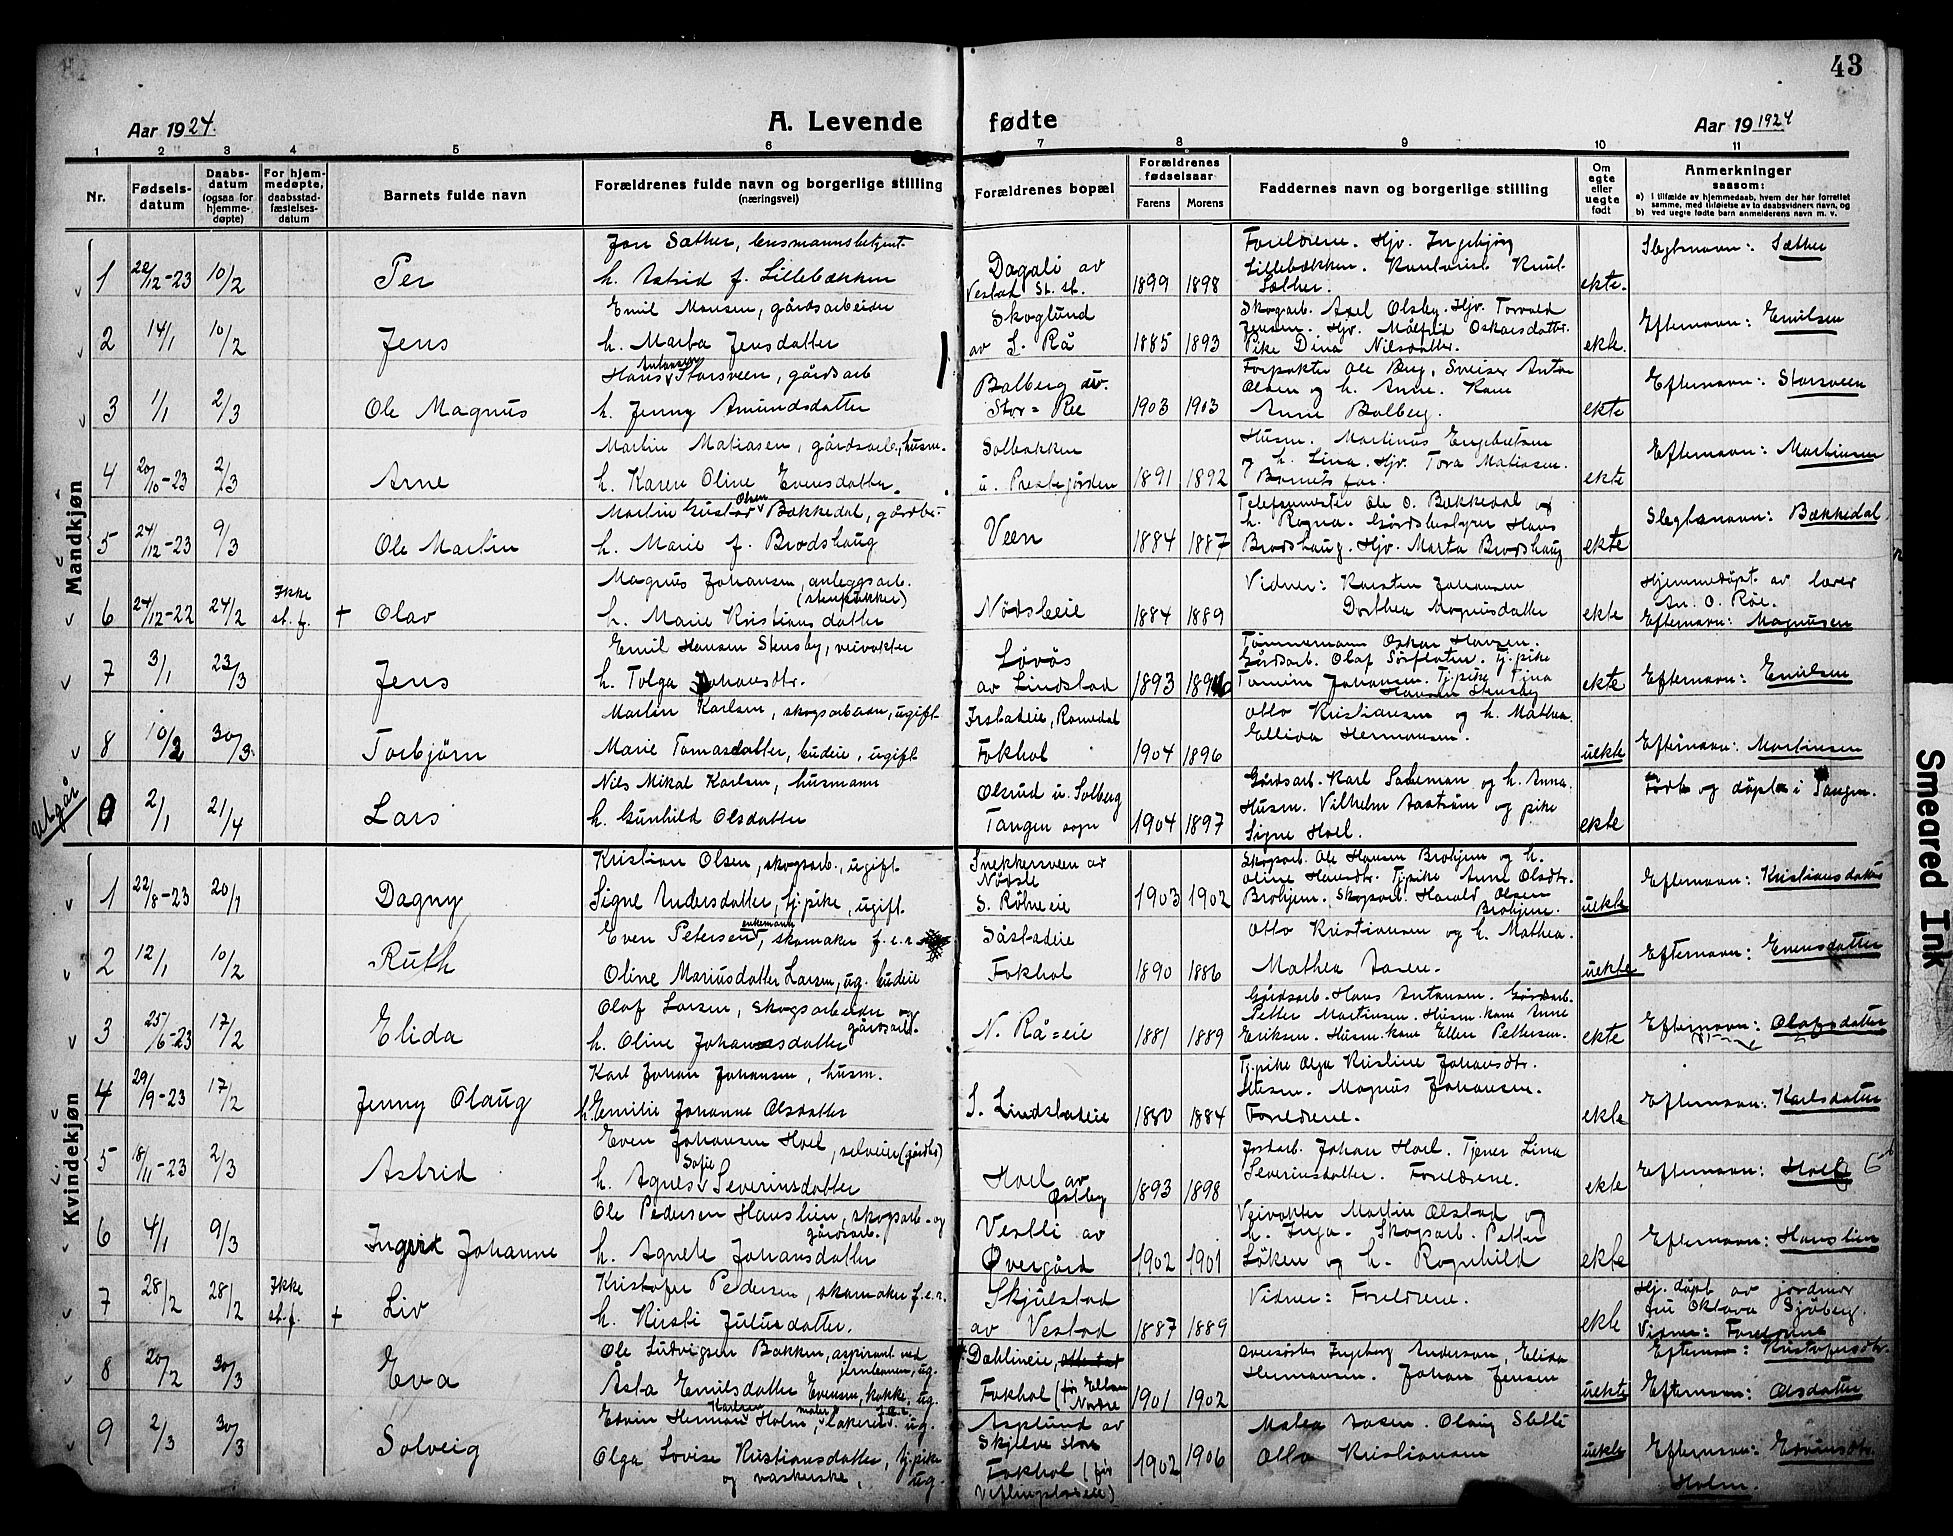 43
Aar 1924.
A. Levende fødte
Aar 19 1924
1 2 3 4 5 6 7 8 9 10 11
Nr.
Fødselsdatum
Daabsdatum (ogsaa for hjemmedøpte)
For hjemmedøpte, daabsstadfæstelsesdatum
Barnets fulde navn
Forældrenes fulde navn og borgerlige stilling (næringsvei)
Forældrenes bopæl
Forældrenes fødselsaar
Farens Morens
Faddernes navn og borgerlige stilling
Om egte eller uegte født
Anmerkninger saasom:
a) I tilfælde av hjemmedaab, hvem der har forrettet samme, med tilføielse av to daabsvidners navn, og
b) ved uegte fødte barn anmelderens navn m. v.
Mandkjøn
1 22/12-23 10/2 Per
Jon Sæther, lensmannsbetjent
h. Astrid f. Lillebækken
Dagali av Vestad St. st.
1899 1898
Foreldrene. Hjv. Ingebjørg
Lillebækken. Knut
Sæther.
ekte.
Slegtsnavn: Sæther
2 14/1 10/2 Jens
Emil Monsen, gårdsarbeider
h. Marta Jensdatter
Skoglund av S. Rå
1885 1893
Skogarb. Axel Olsby. Hjv. Torvald
Jensen. Hjv. Målfrid Oskarsdatter.
Pike Dina Nilsdatter.
ekte.
Efternavn: Emilsen
3 1/1 2/3 Ole Magnus
Hans Antonsen Storsveen, gårdsarb
h. Jenny Amundsdatter
Balberg av Stor-Ree
1903 1903
Forpakter Ole Berg, Sveiser Anton
Olsen og h. Anne. Kone
Anne Balberg.
ekte
Efternavn: Storsveen
4 20/10-23 2/3 Arne
Martin Matiasen, gårdsarb., husm.
h. Karen Oline Evensdatter.
Solbakken u. Prestegården
1891 1892
Husm. Martinus Engebretsen
h. Lina. Hjv. Tora Matiasen.
Barnets far.
ekte
Efternavn: Martinsen
5 24/12-23 9/3 Ole Martin
Martin Gustav Olsen Bækkedal, gårdbr.
h. Marie f. Brodshaug
Veen
1884 1887
Telefonmester Ole O. Bækkedal og
h. Ragna. Gårdbestyrer Hans
Brodshaug. Hjv. Marta Brodshaug
ekte
Slegtsnavn: Bækkedal
6 24/12-22 24/2 Ikke st. f. + Olav
Magnus Johansen, anleggsarb.
(stenpukker)
h. Marie Kristiansdatter
Nøtsleeie
1884 1889
Vidner: Karsten Johansen
Dorthea Magnusdatter
ekte
Hjemmedøpt av lærer
An. O. Røe.
Efternavn: Magnusen
7 3/1 23/3 Jens
Emil Hansen Stensby, veivokter
h. Tolga Johansdtr.
Løvås av Lindstad
1893
Tømmermann Oskar Hansen.
Gårdsarb. Olaf Sørfloten. Tj.pike
Johansen. Tj.pike Tina
Hansen Stensby
ekte
Efternavn: Emilsen
8 10/2 30/3 Torbjørn
Martin Karlsen, skogsarbeider, ugift
Marie Tomasdatter, budeie, ugift
Irstadeie, Romedal
Fokhol
1904 1896
Otto Kristiansen og h. Mathea.
Elliva Hermansen.
uekte
Efternavn: Martinsen
utgår
2/1 21/4 Lars
Nils Mikal Karlsen, husmann
h. Gunhild Olsdatter
Olsrud u. Solberg
Tangen sogn
1904 1897
Gårdsarb. Karl Sademan og h. Anna.
Husm. Vilhelm Aastrøm og pike
Signe Hoel.
ekte
Født og døpt i Tangen.
Kvindekjøn
1 22/8-23 20/1 Dagny
Kristian Olsen, skogsarb., ugift.
Signe Andersdatter, tj.pike, ugift.
Snekkersveen av Nøtsle
S. Røhneeie
1903 1902
Skogsarb. Ole Hansen Brohjem og h.
Oline Hansdtr. Tj.pike Anne Olsdtr.
Brohjem. Skogsarb. Harald Olsen
Brohjem.
uekte
Efternavn: Kristiansdatter
2 12/1 10/2 Ruth
Even Petersen, enkemann, skomaker f.e.r.
Oline Mariusdatter Larsen, ug. budeie
Såstadeie
Fokhol
1890 1886
Otto Kristiansen og h. Mathea.
Mathea Aasen.
uekte
Efternavn: Evensdatter
3 25/6-23 17/2 Elida
Olaf Larsen, skogsarbeider og
gårdsarb.
h. Oline Johansdatter
N. Rå=eie
1881 1889
Gårdsarb. Hans Antonsen. Gårdsarb.
Petter Martinsen. Husm.kone Anne
Eriksen. Husm.kone Ellen Pettersen.
ekte
Efternavn: Olafsdatter
4 29/9-23 17/2 Jenny Olaug
Karl Johan Johansen, husm.
h. Emilie Johanne Olsdatter
S. Lindstadeie
1880 1884
Tj.pike Olga Kristine Johansdtr.
Husm. Magnus Johansen.
Foreldrene.
ekte
Efternavn: Karlsdatter
5 18/11-23 2/3 Astrid
Even Johansen Hoel, selveier (gårdbr)
h. Agnes Sofie Severinsdatter
Hoel av Østby
1893 1898
Jordarb. Johan Hoel. Tjener Lina
Severinsdatter. Foreldrene.
ekte
Efternavn: Hoel
6 4/1 9/3 Ingrid Johanne
Ole Pedersen Hanslien, skogsarb. og
gårdsarb.
h. Agnete Johansdatter
Vestli av Øvergård
1902 1901
Veivokter Martin Ølstad og
h. Inga. Skogsarb. Petter
Løken og h. Ragnhild
ekte
Efternavn: Hanslien
7 28/2 28/2 Ikke st.f. + Liv
Kristofer Pedersen, skomaker f.e.r.
h. Kirsti Juliusdatter.
Skjulstad av Vestad
1887 1889
Vidner: Foreldrene.
ekte
Hj. døpt av jordmor
fru Oktava Sjøberg.
Vidner: Foreldrene
Efternavn: Kristofersdtr.
8 20/2 30/3 Eva
Ole Ludvigsen Bakken, aspirant ved
jernbanen, ug.
Åsta Emilsdatter Evensen, kokke, ug.
Dahlineie,
Fokhol
1901 1902
Ingeborg Anderson, Elida
Hermansen. Johan Jensen
uekte
Efternavn: Olsdatter
9 2/3 30/3 Solveig
Edvin Herman Karlsen Holm, maler, ug.
Olga Lovise Kristiansdatter, tj.pike
og vaskerske, ug.
Asplund av
Skjelve store
Fokhol (før
1902 1906
Matea Aasen. Olaug Sletli
Otto Kristiansen
uekte
Efternavn: Edvinsdtr.
Holm.
Smeared Ink